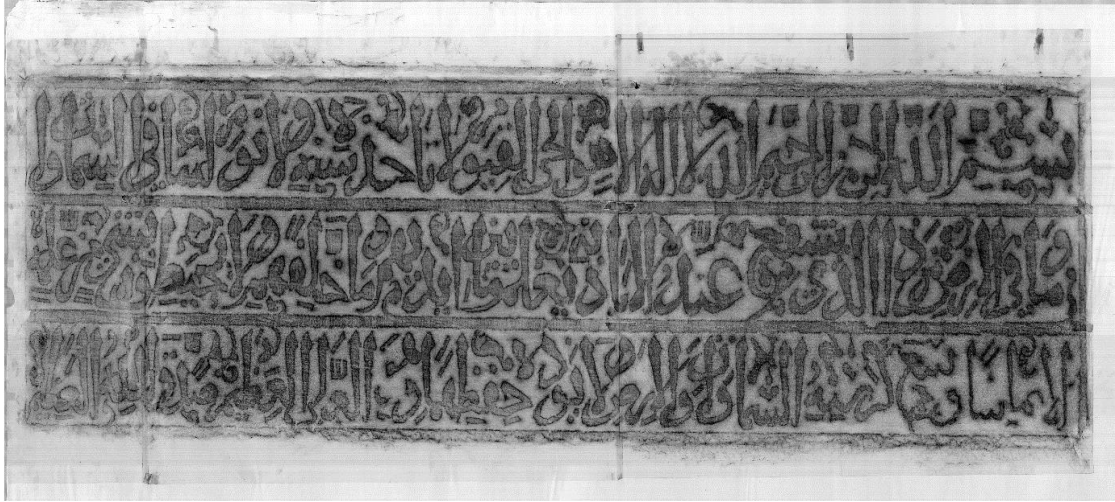 بسم الله الرحمن الرحيم الله لا اله الا هو الحي القيوم لا تاخذه سنة ولا نوم له ما في السموات
وما في الارض من ذا الذي يشفع عنده الا باذنه يعلم ما بين ايديهم وما خلفهم ولا يحيطون بشئ من علمه
الا بما شا وسع كرسيه السموات والارض ولا يوده حفظهما وهو العلي العظيم